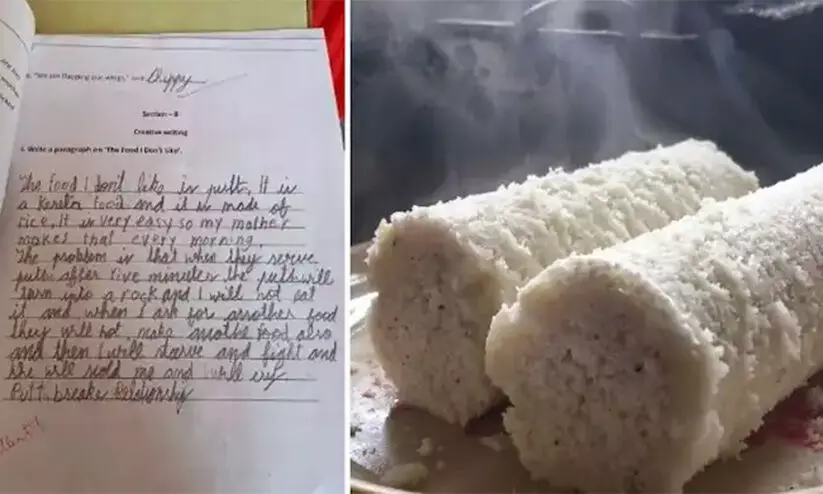 "We are flapping our wings," said Chippy
Section - B
Creative writing
Write a paragraph on 'The Food I Don't Like'.
The food I don't like is putt. It is
a Kerala food and it is made of
rice. It is very easy so my mother
makes that every morning.
The problem is that when they serve
putt. after five minutes the putt will
turn into a rock and I will not eat
it and when I ask for another food
they will not make anothe food also
and then I will starve and fight and
she will scold me and I will cry
Putt breaks Relationship